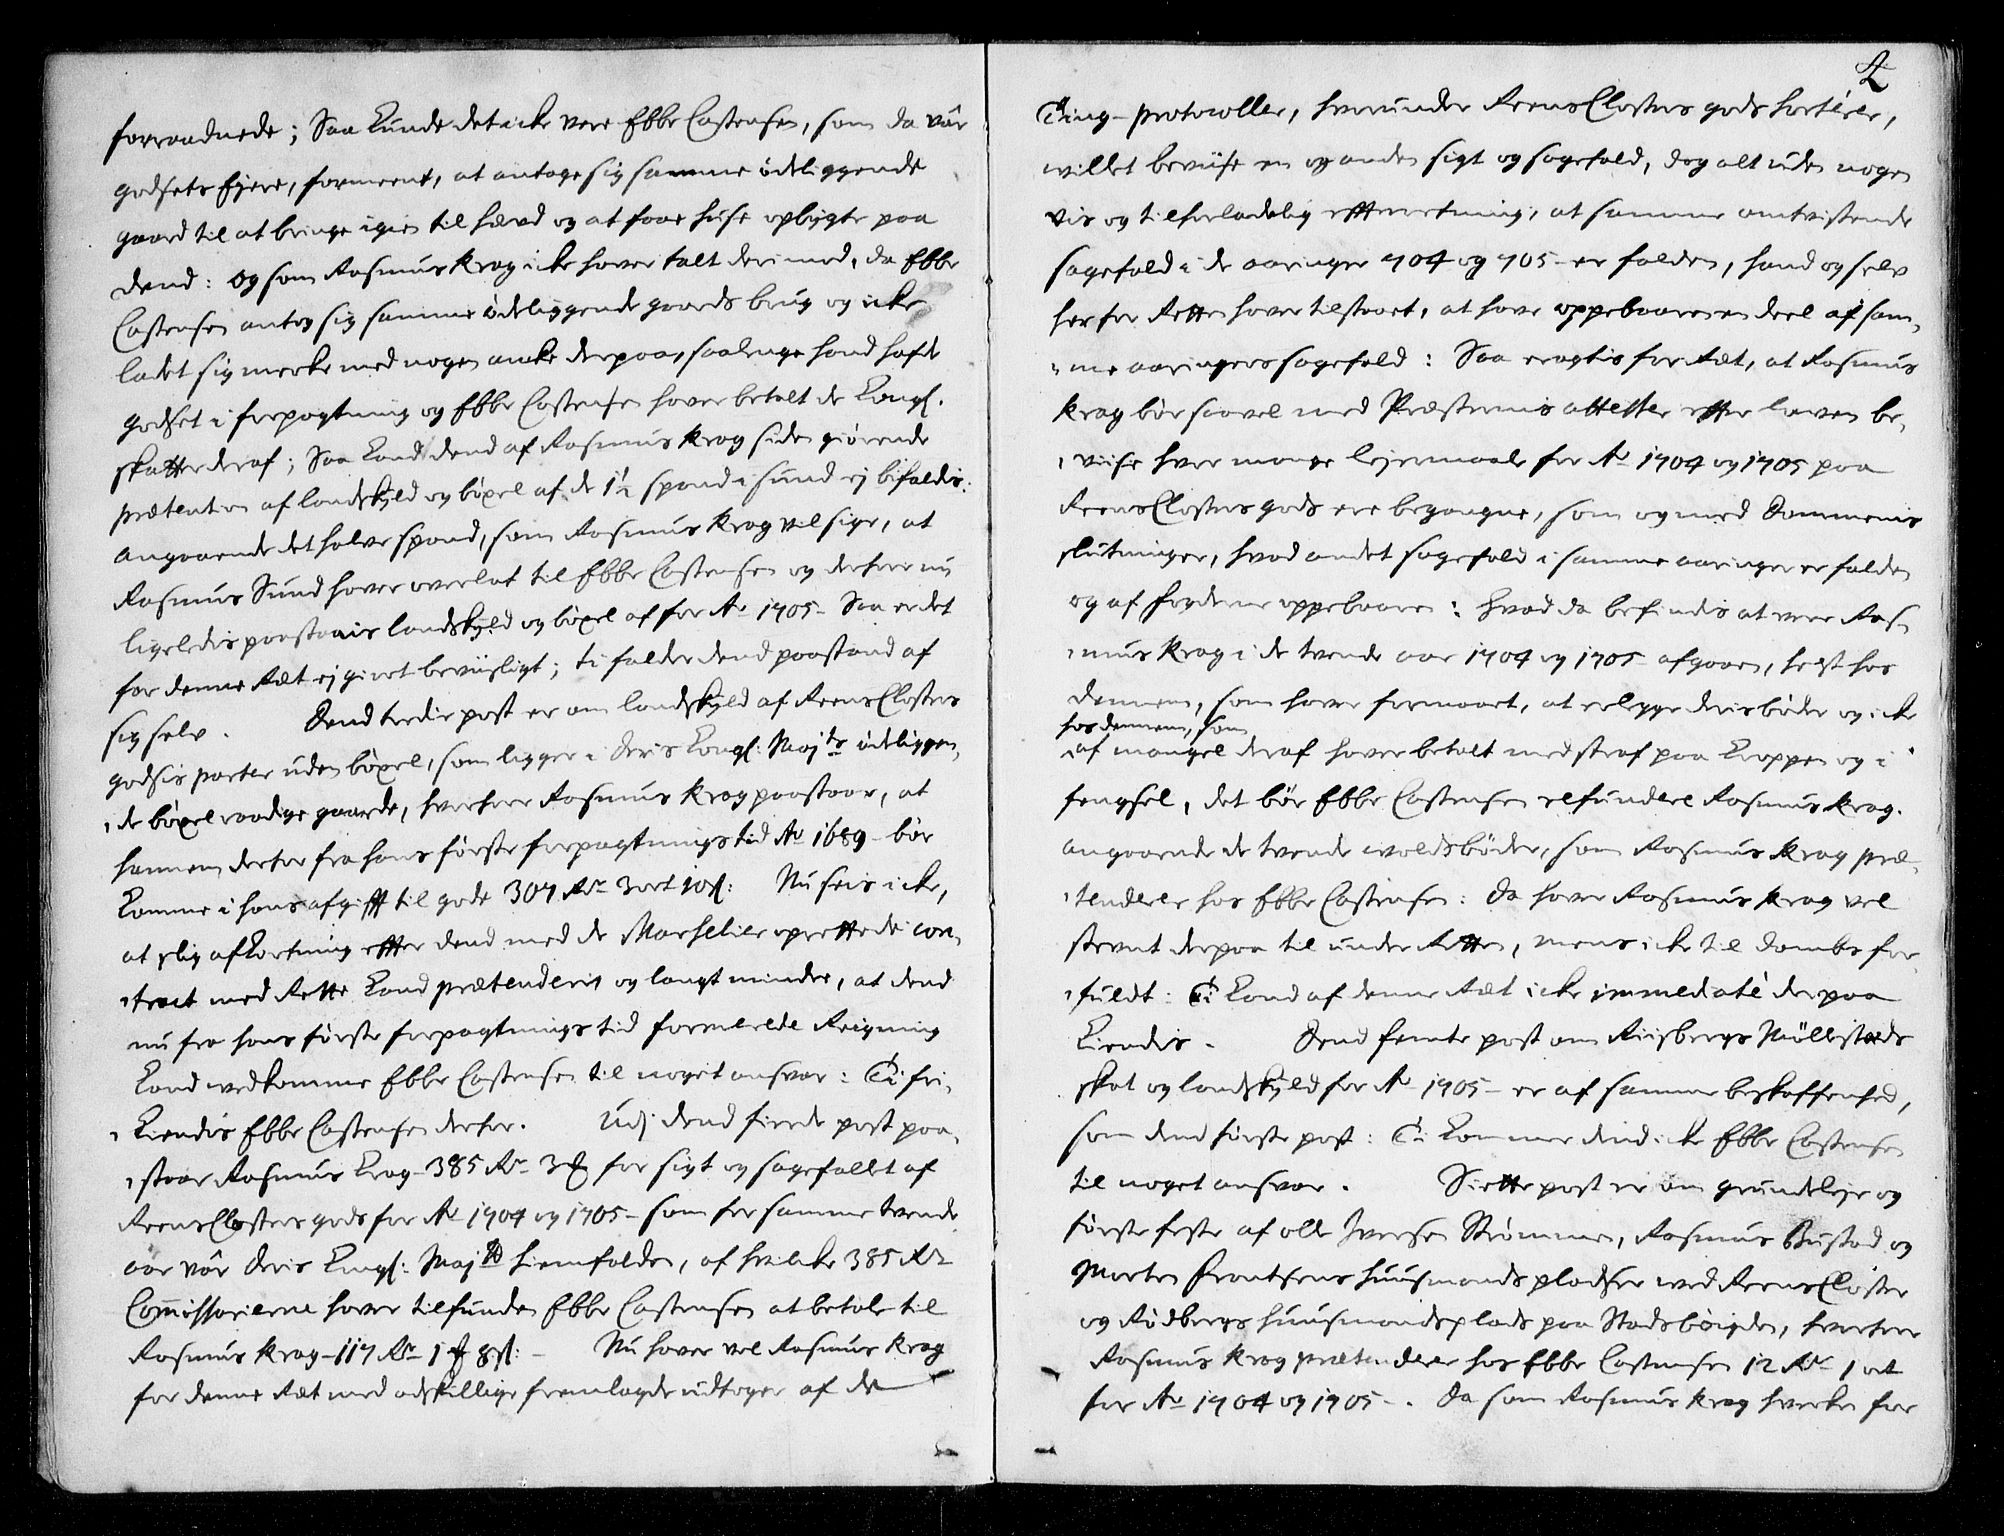 forraadnede; Saa kunde det icke vere Ebbe Castensen, som da vâr
godsets Ejere, formeent, at antage sig samme ödeliggende
gaard til at bringe igien til hævd og at faae huse opbygte paa
dend: og som Rasmus Krag icke haver talt derimod, da Ebbe
Castensen antog sig samme ödeliggende gaards brug og icke
ladet sig merke med nogen anke derpaa, saalenge hand hafde
godset i forpagtning og Ebbe Castensen haver betalt de Kongl.
skatter deraf; Saa kand dend af Rasmus Krag siden giörende
prætention af landskyld og böxel af de 1½ spand i Sund ej bifaldis:
angaaende det halve spand, som Rasmus Krag vil sige, at
Rasmus Sund haver overlat til Ebbe Castensen og derfore nu
ligeledis paastaais landskyld og böxel af for Aō 1705 - Saa er det
for denne Ræt ej giort beviisligt; ti falder dend paastand af
sig selv. Dend tredie post er om landskyld af ReensClosters
godsis parter uden böxel, som ligger i Deris Kongl: Maj:ts ödeliggen-
-de böxelraadige gaarde, hvorfore Rasmus Krag paastaar, at
hannem derfor fra hans förste forpagtnings tid Aō 1689 - bör
komme i hans afgifft til gode 307 Rdr 3 ort 10 s: Nu seis icke,
at slig afkortning effter dend med de Marselier oprettede con-
-tract med Rette kand prætenderis og langt mindre, at dend
nu fra hans förste forpagtnings tid formerede Reigning
kand vedkomme Ebbe Castensen til noget ansvar: Ti fri-
-kiendis Ebbe Castensen derfor. Udj dend fierde post paa-
-staar Rasmus Krag 385 Rdr 3 ort for sigt og sagefaldt af
ReensClosters gods for Aō 1704 og 1705 - som for samme tvende
aar vâr Deris Kongl: Maj:tt hiemfalden, af hvilke 385 Rdr
Commissarierne haver tilfunden Ebbe Castensen at betale til
Rasmus Krag 117 Rdr 1 ort 8 s: - Nu haver vel Rasmus Krag
for denne Ræt med adskillige fremlagde udtoger af de
2
Ting-protocoller, hvorunder ReensClosters gods sorterer,
villet beviise en og anden sigt og sagefald, dog alt uden nogen
vis og tilforladelig effterretning, at samme omtvistende
sagefald i de aaringer 704 og 705 - er falden, hand og selv
her for Retten haver tilstaaet, at have oppebaaren en deel af sam-
-me aaringers sagefald: Saa eragtis for Ræt, at Rasmus
Krag bör saavel med Præsternis attester effter loven be-
-viise hvor mange lejermaale for Aō 1704 og 1705 paa
ReensClosters gods ere begangne, som og med Dommenis
slutninger, hvad andet sagefald i samme aaringer er falden
og af fogderne oppebaaren: hvad da befindis at vere Ras-
-mus Krag i de tvende aar 1704 og 1705 - afgaaen, helst hos
dennem, som haver formaaet, at erlegge deris böder og icke
hos dennem, som
af mangel deraf haver betalt med straf paa kroppen og i
fengsel, det bör Ebbe Castensen refundere Rasmus Krag.
angaaende de tvende voldsböder, som Rasmus Krag præ-
-tenderer hos Ebbe Castensen: da haver Rasmus Krag vel
stevnt derpaa til under Retten, mens icke til dombs for-
-fuldt: Ti kand af denne Ræt icke immediatè derpaa
kiendis. Dend femte post om Riisbergs Möllesteds
skat og landskyld for Aō 1705 - er af samme beskaffenhed,
som dend förste post: Ti kommer dend icke Ebbe Castensen
til noget ansvar. Siette post er om grundleje og
förste feste af olle Iversen Strömmen, Rasmus Bustad og
Morten Frantsens huusmands pladser ved ReensCloster
og Rödbergs huusmandsplads paa Stadsböigden, hvorfore
Rasmus Krag prætenderer hos Ebbe Castensen 12 Rdr 1 ort
for Aō 1704 og 1705 -. Da som Rasmus Krag hverken for